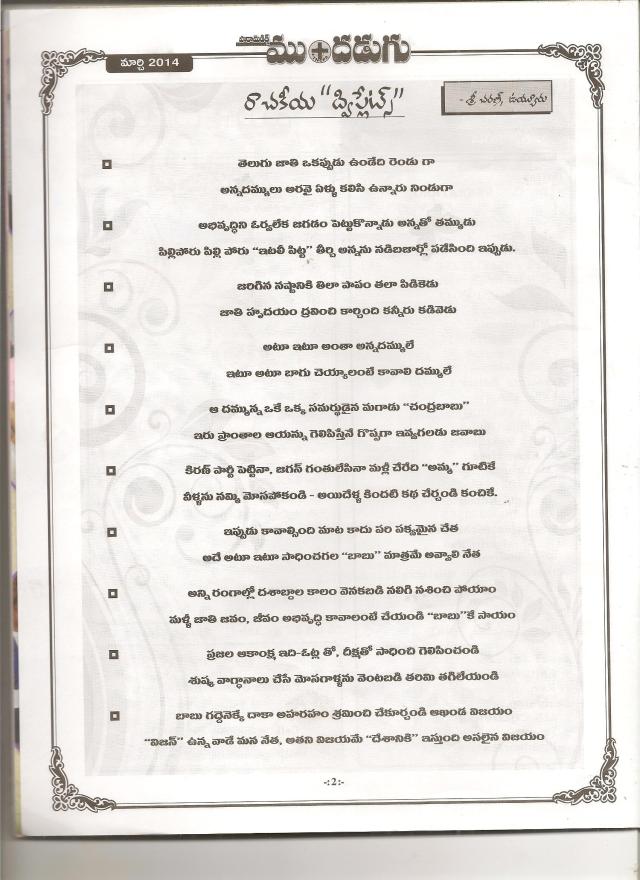 పారామెడిక్
ము+దడుగు
మార్చి 2014
రాచకీయ "ద్విప్లేట్స్"
- శ్రీ చరణ్, ఉయ్యూరు
తెలుగు జాతి ఒకప్పుడు ఉండేది రెండు గా
అన్నదమ్ములు అరవై ఏళ్ళు కలిసి ఉన్నారు నిండుగా
అభివృద్ధిని ఓర్వలేక జగడం పెట్టుకొన్నాడు అన్నతో తమ్ముడు
పిల్లిపోరు పిల్లి పోరు "ఇటలీ పిట్ట" తీర్చి అన్నను నడిబజార్లో పడేసింది ఇప్పుడు.
జరిగిన నష్టానికి తిలా పాపం తలా పిడికెడు
జాతి హృదయం ద్రవించి కార్చింది కన్నీరు కడివెడు
అటూ ఇటూ అంతా అన్నదమ్ములే
ఇటూ అటూ బాగు చెయ్యాలంటే కావాలి దమ్ములే
ఆ దమ్మున్న ఒకే ఒక్క సమర్థుడైన మగాడు "చంద్రబాబు"
ఇరు ప్రాంతాల ఆయన్ను గెలిపిస్తేనే గొప్పగా ఇవ్వగలడు జవాబు
కిరణ్ పార్టీ పెట్టినా, జగన్ గంతులేసినా మళ్లీ చేరేది "అమ్మ" గూటికే
వీళ్ళను నమ్మి మోసపోకండి - అయిదేళ్ళ కిందటి కథ చేర్చండి కంచికే.
ఇప్పుడు కావాల్సింది మాట కాదు పరి పక్వమైన చేత
అదే అటూ ఇటూ సాధించగల "బాబు" మాత్రమే అవ్వాలి నేత
అన్ని రంగాల్లో దశాబ్దాల కాలం వెనకబడి నలిగి నశించి పోయాం
మళ్ళీ జాతి జనం, జీవం అభివృద్ధి కావాలంటే చేయండి "బాబు"కే సాయం
ప్రజల ఆకాంక్ష ఇది-ఓట్ల తో, దీక్షతో సాధించి గెలిపించండి
శుష్క వాగ్ధానాలు చేసే మోసగాళ్ళను వెంటబడి తరిమి తగిలేయండి
బాబు గద్దెనెక్కే దాకా అహరహం శ్రమించి చేకూర్చండి అఖండ విజయం
"విజన్" ఉన్న వాడే మన నేత, అతని విజయమే "దేశానికి" ఇస్తుంది అసలైన విజయం
-:2:-